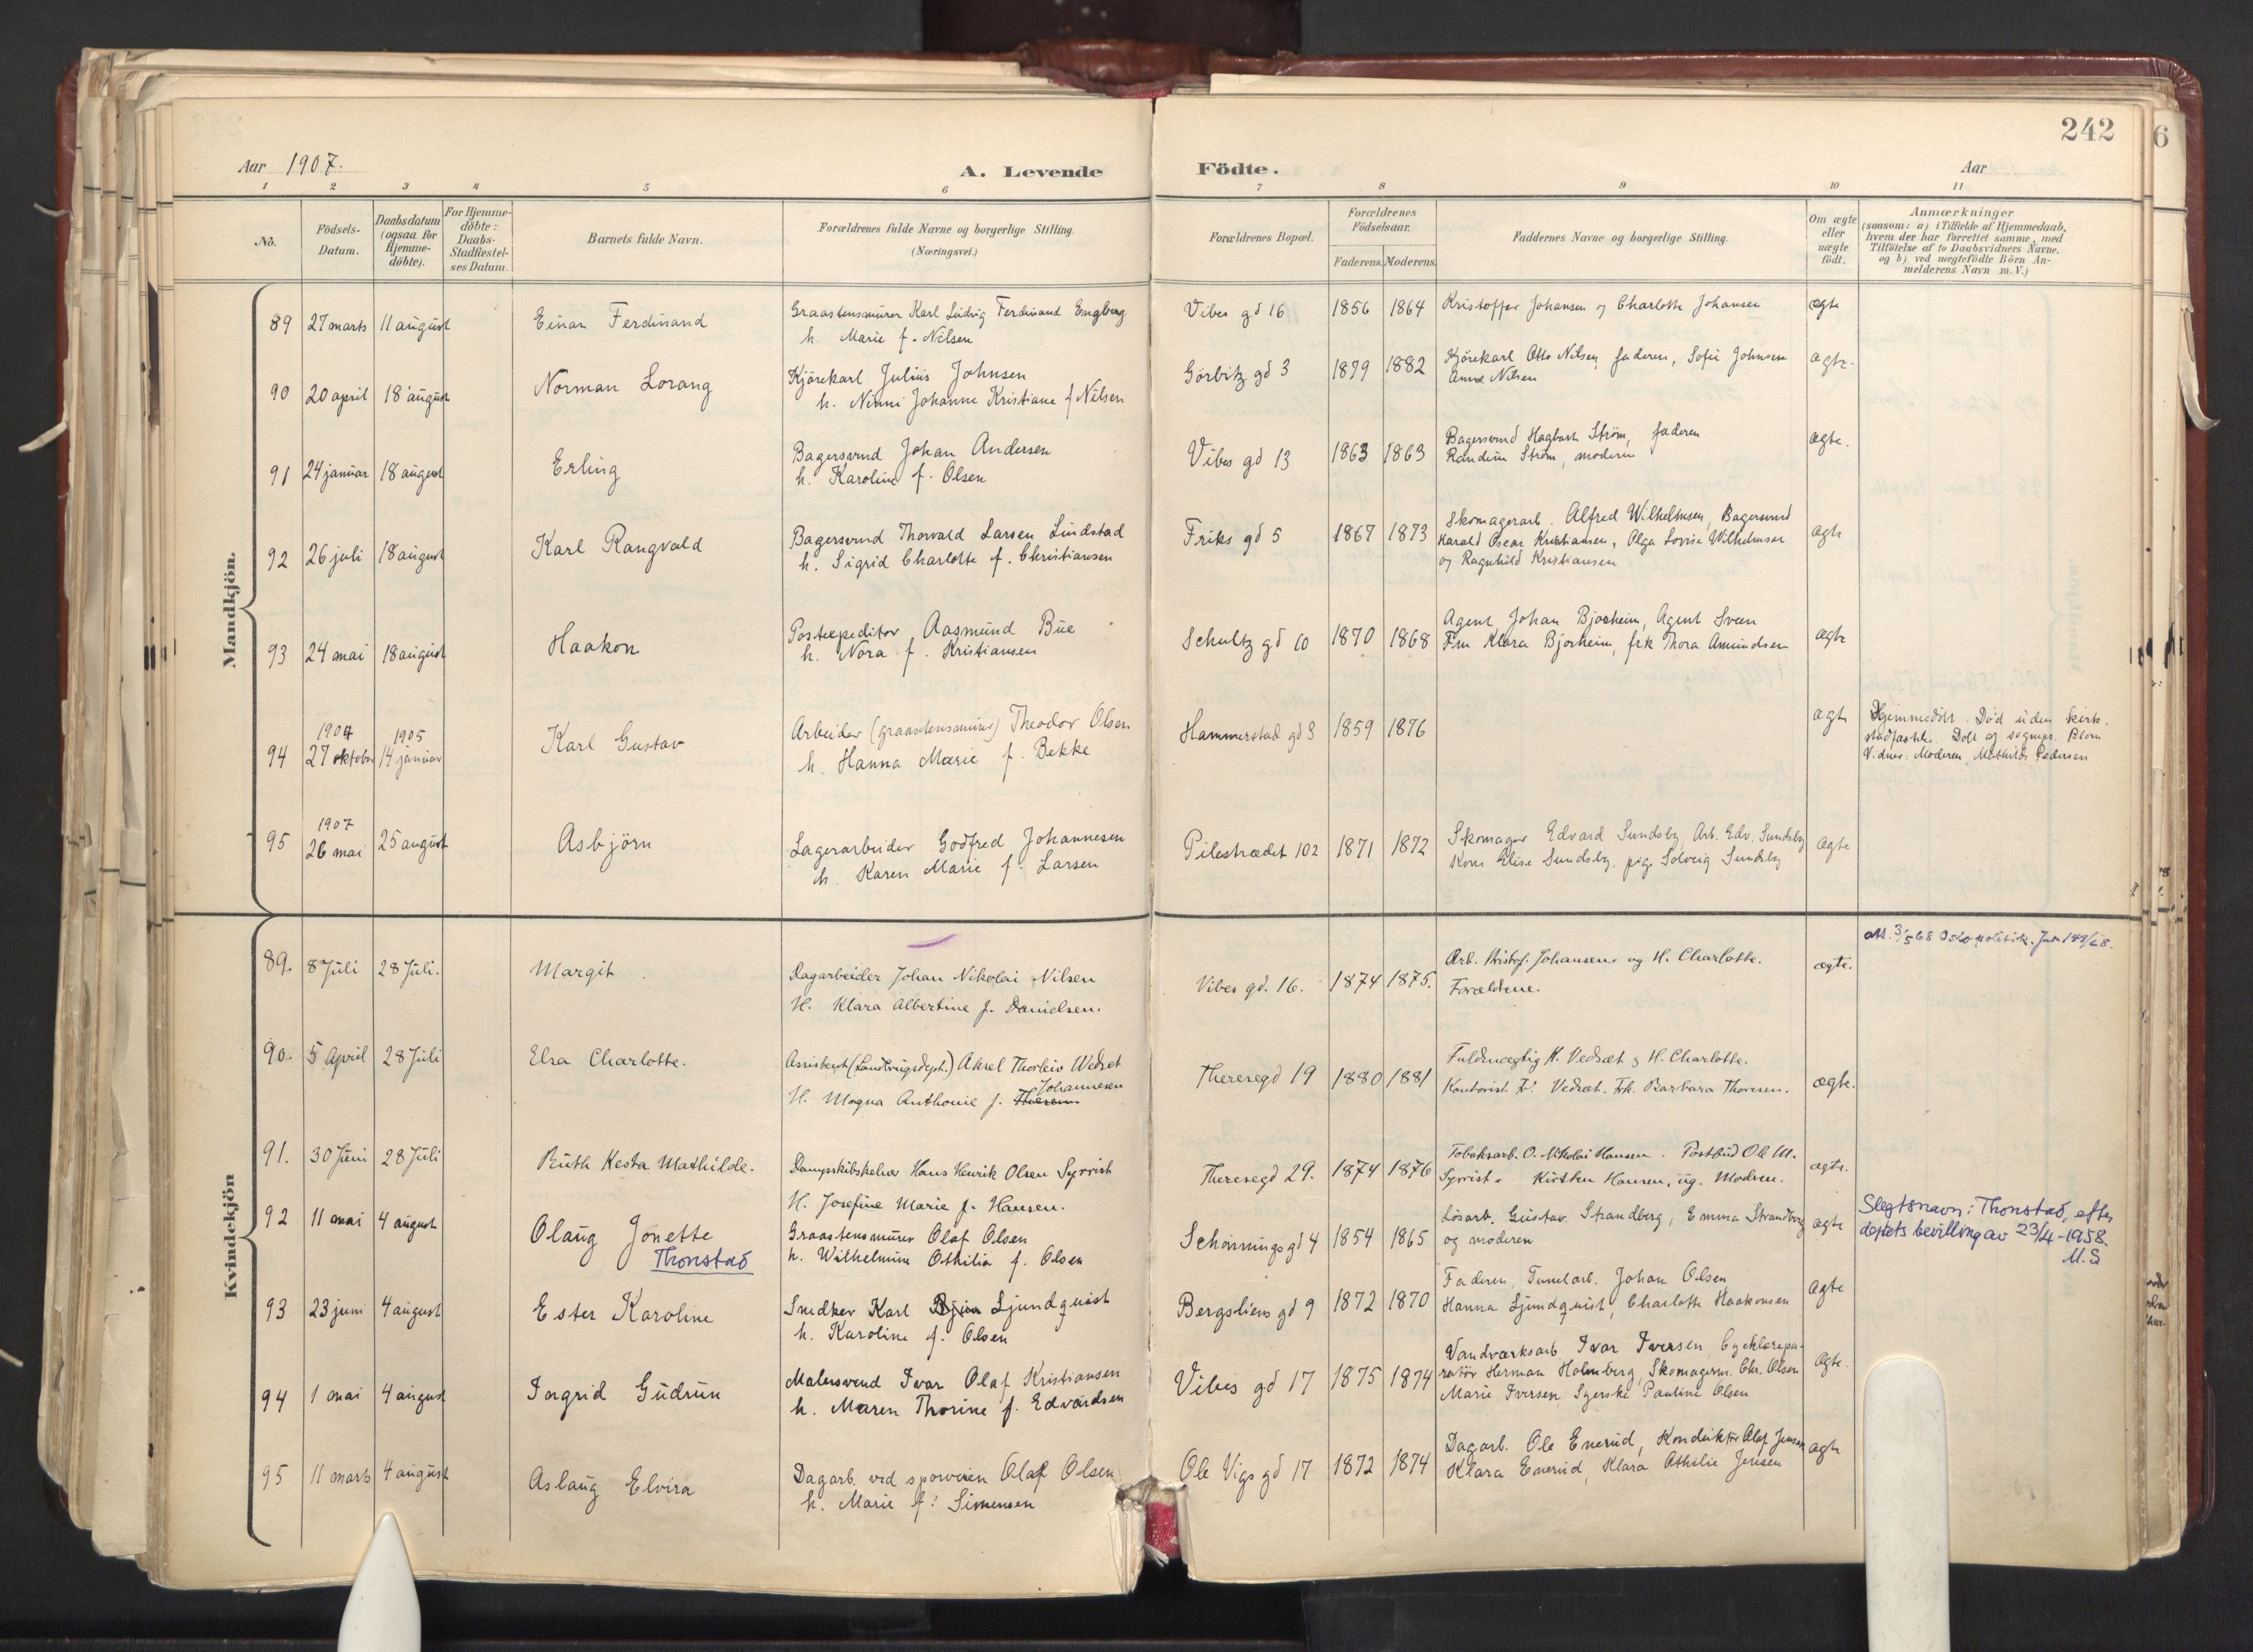 242
6
Aar 1907.
A. Levende Födte.
Aar
1 2 3 4 5 6 7 8 9 10 11
No.
Födsels-
Datum.
Daabsdatum
(ogsaa for
Hjemme-
döbte).
For Hjemme-
döbte:
Daabs-
Stadfæstel-
ses Datum.
Barnets fulde Navn.
Forældrenes fulde Navne og borgerlige Stilling.
(Næringsvei.)
Forældrenes Bopæl.
Forældrenes
Födselsaar.
Faderens. Moderens.
Faddernes Navne og borgerlige Stilling.
Om ægte
eller
uægte
födt.
Anmærkninger
(saasom: a) i Tilfælde af Hjemmedaab,
hvem der har forrettet samme, med
Tilföielse af to Daabsvidners Navne,
og b) ved uægtefödte Börn An-
melderens Navn m. V.)
Mandkjön.
89 27 marts 11 august Einar Ferdinand
Graastensmurer Karl Ludvig Ferdinand Engberg
h. Marie f. Nilsen
Vibes gd 16 1856 1864
Kristoffer Johansen og Charlotte Johansen
ægte
90 20 april 18 august Norman Lorang
Kjörekarl Julius Johnsen
h. Ninni Johanne Kristiane f Nilsen
Görbitz gd 3 1879 1882
Kjörekarl Otto Nilsen, faderen, Sofie Johnsen
Anna Nilsen
ægte.
91 24 januar 18 august Erling
Bagersvend Johan Andersen
h. Karoline f. Olsen
Vibes gd 13 1863 1863
Bagersvend Hagbart Ström, faderen
Randine Ström, moderen
ægte.
92 26 juli 18 august Karl Rangvald
Bagersvend Thorvald Larsen Lindstad
h. Sigrid Charlotte f. Christiansen
Friks gd 5 1867 1873
Skomagerarb. Alfred Wilhelmsen, Bagersvend
Harald Oscar Kristiansen, Olga Lovise Wilhelmsen
og Ragnhild Kristiansen
ægte
93 24 mai 18 august Haakon
Postexpeditor Aasmund Bue
h. Nora f. Kristiansen
Schultz gd 10 1870 1868
Agent Johan Bjorheim, Agent Sveen
Fru Klara Bjorheim, frk Thora Amundsen
ægte
94 1904 27 oktober 1905 14 januar Karl Gustav
Arbeider (graastensmurer) Theodor Olsen
h. Hanna Marie f. Bekke
Hammerstad gd 8 1859 1876
ægte
Hjemmedöbt. Död uden kirk.
stadfæstelse. Döbt af sognepr. Blom
Vidner: Moderen, Mathilde Pedersen
95 1907 26 mai 25 august Asbjörn
Lagerarbeider Godfred Johannesen
h. Karen Marie f. Larsen
Pilestrædet 102 1871 1872
Skomager Edvard Sundsby, Arb. Edv. Sundsby
Kone Elise Sundsby, pige Solveig Sundsby
ægte
Kvindekjön
89. 8 Juli 28 Juli. Margit
Dagarbeider Johan Nikolai Nilsen
H. Klara Albertine f. Danielsen.
Vibes gd. 16. 1874 1875.
Arb. Kristof. Johansen og H. Charlotte.
Forældrene.
ægte.
att. 3/5 68 Oslo politik. Jnr 149/68.
90. 5 April 28 Juli Elsa Charlotte.
Assistent (Landbrugsdept.) Aksel Thorleiv Wedset
H. Magna Anthonie f. Johannesen
Theresegd 19 1880 1881
Fuldmægtig K. Vedsæt & H. Charlotte.
Kontorist Fr. Vedsæt. Frk. Barbara Thoresen.
ægte.
91. 30 Juni 28 Juli Ruth Hesta Mathilde.
Dampskibskelner Hans Henrik Olsen Syrrist
H. Josefine Marie f. Hansen.
Theresegd 29. 1874 1876
Tobaksarb. O. Nikolai Hansen. Postbud Ole M.
Syrrist. Kirsten Hansen, ug. Modren.
ægte.
92 11 mai 4 august Olaug Jonette
Thonstad
Graastensmurer Olaf Olsen
h. Wilhelmine Othilia f. Olsen
Schønnings gd 4 1854 1865
Løsarb. Gustav Strandberg, Emma Strandberg
og moderen
ægte
Slegtsnavn: Thonstad, efter
dep.ets bevilling av 23/4-1958.
M.S
93 23 juni 4 august Ester Karoline
Snedker Karl Ljundquist
h. Karoline f. Olsen
Bergsliens gd 9 1872 1870
Faderen, Tunelarb. Johan Olsen
Hanna Ljundquist, Charlotte Haakonsen
ægte
94 1 mai 4 august Ingrid Gudrun
Malersvend Ivar Olaf Kristiansen
h. Maren Thorine f. Edvardsen
Vibes gd 17 1875 1874
Vandværksarb Ivar Iversen, Cyclerepa-
ratör Herman Holmberg, Skomagersv. Chr. Olsen
Marie Iversen Syerske Pauline Olsen
ægte.
95 11 marts 4 august Aslaug Elvira
Dagarb. ved sporveien Olaf Olsen
h. Marie f. Simensen
Ole Vigs gd 17 1872 1874
Dagarb. Ole Enerud, Konduktör Olaf Jensen
Klara Enerud, Klara Othilie Jensen
ægte